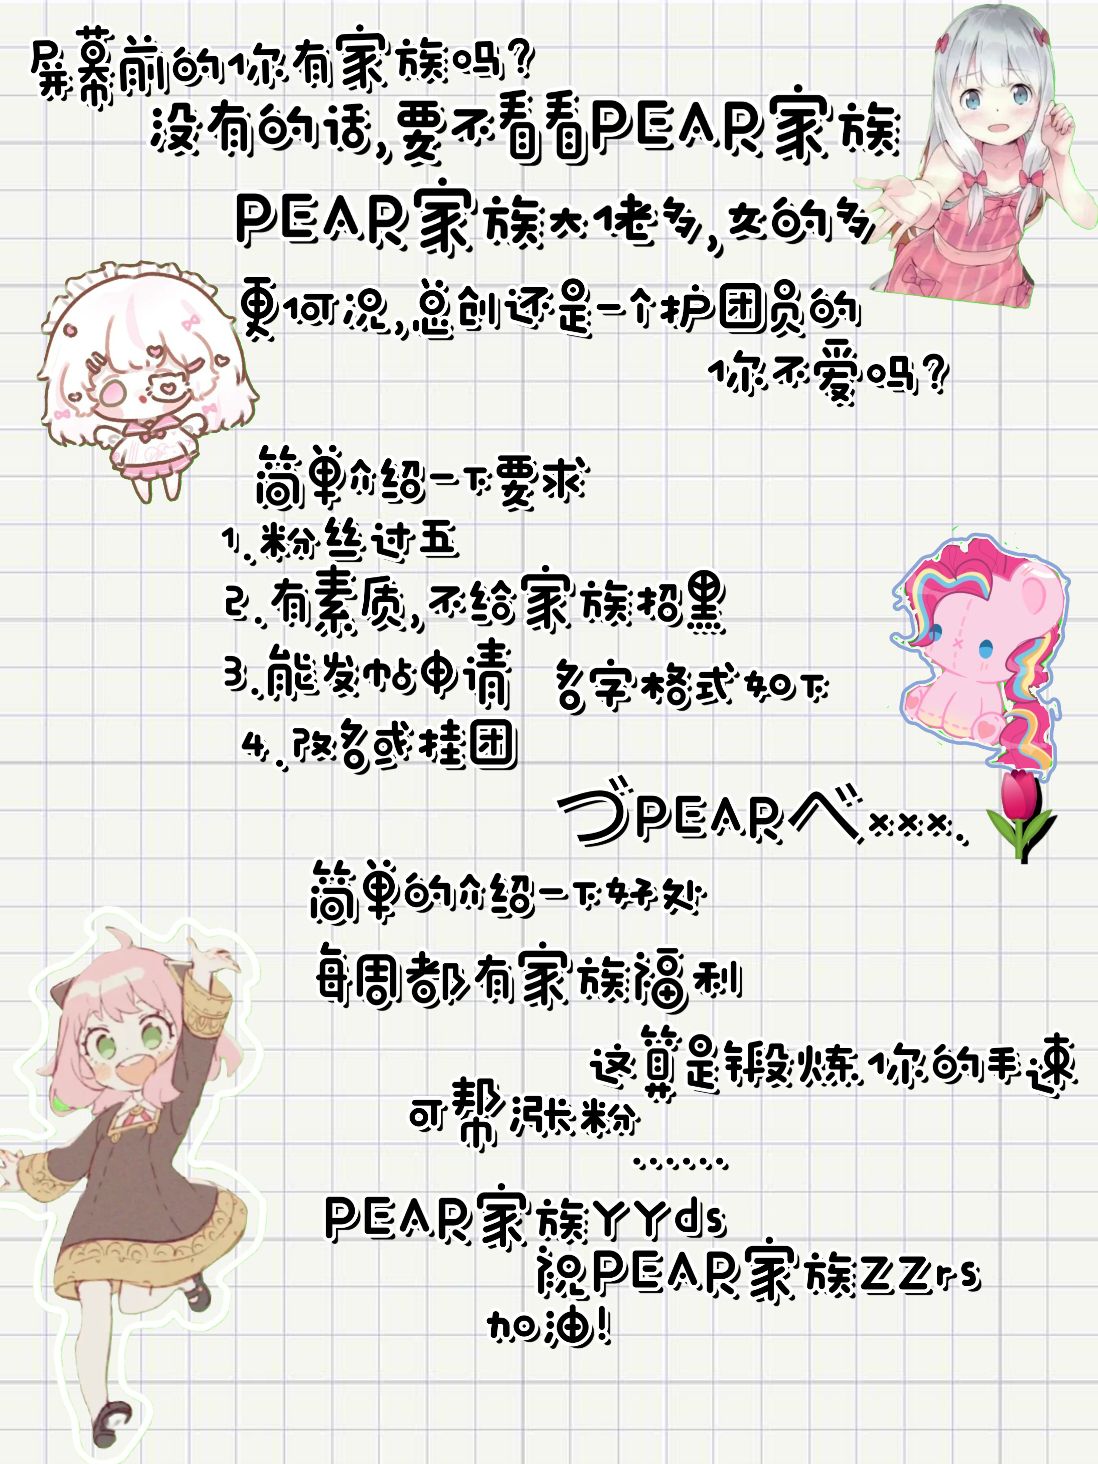 屏幕前的你有家族吗?
没有的话,要不看看PEAR家族
PEAR家族大佬多,女的多
更何况,总创还是一个护团员的
你不爱吗?
简单介绍一下要求
1.粉丝过五
2.有素质,不给家族招黑
3.能发帖申请
名字格式如下
4.改名或挂团
づPEARべ×××.
简单的介绍一下好处
每周都有家族福利
这算是锻炼你的手速
可帮涨粉
······
PEAR家族YYds
祝PEAR家族ZZrs
加油!